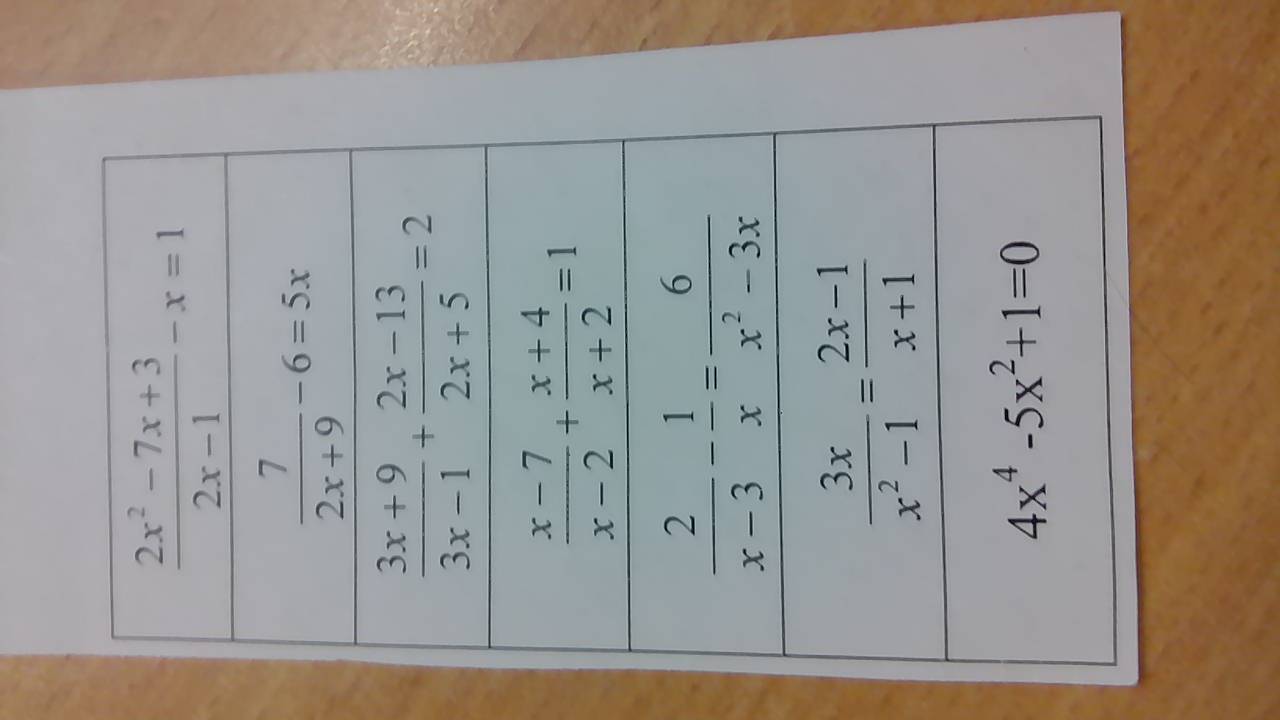 (2x² − 7x + 3)/(2x − 1) − x = 1
7/(2x + 9) − 6 = 5x
(3x + 9)/(3x − 1) + (2x − 13)/(2x + 5) = 2
(x − 7)/(x − 2) + (x + 4)/(x + 2) = 1
2/(x − 3) − 1/x = 6/(x² − 3x)
3x/(x² − 1) = (2x − 1)/(x + 1)
4x⁴ -5x²+1=0